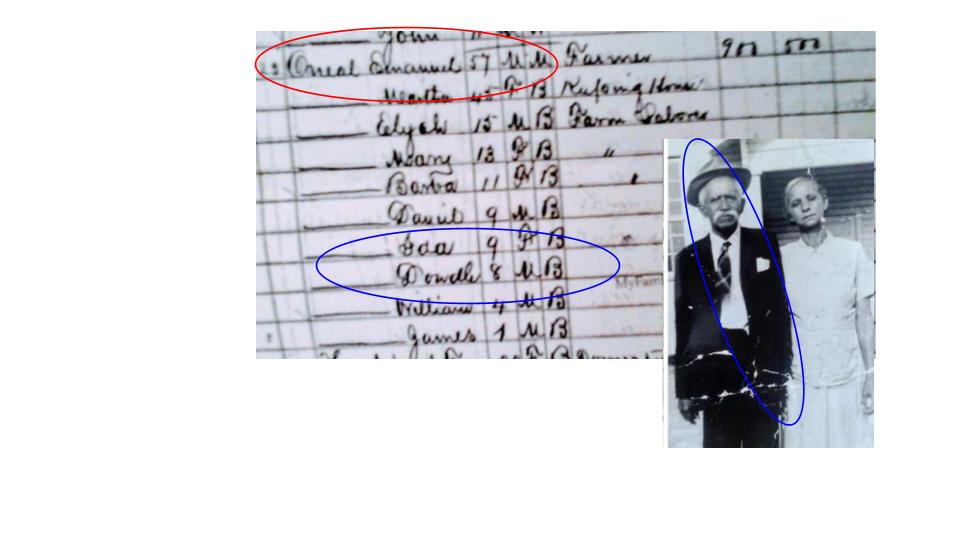 John 11
Oneal Emanuel 57 M M Farmer 900 500
Martha 45 F B Keeping House
Elyah 15 M B Farm Laborer
Mary 13 F B "
Barba 11 F B "
Daniel 9 M B
Ida 9 F B "
Dowdle 8 M B
MyFam
William 4 M B
James 1 M B
F B